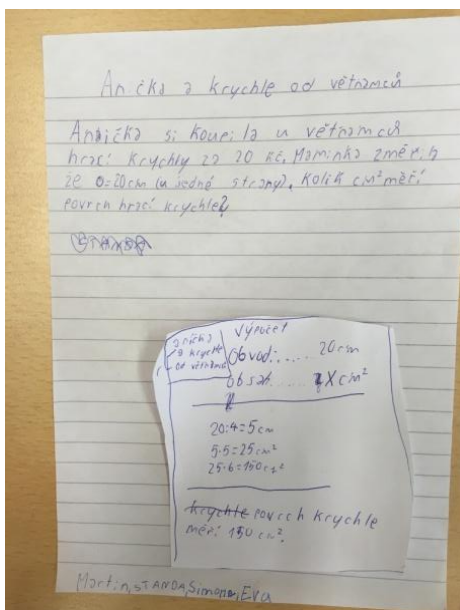 Anička a krychle od větnamců
Anička si koupila u větnamců
hrací krychly za 20 kč. Maminka změřila
že O=20cm (u jedné strany). Kolik cm² měří
povrch hrací krychle?
Výpočet
anička
a krychle
od větnamců
Obvod:..... 20cm
obsah...... X cm²
20:4=5cm
5·5=25cm²
25·6=150cm²
krychle povrch krychle
měří 150 cm².
Martin, STANDA, Simona, Eva